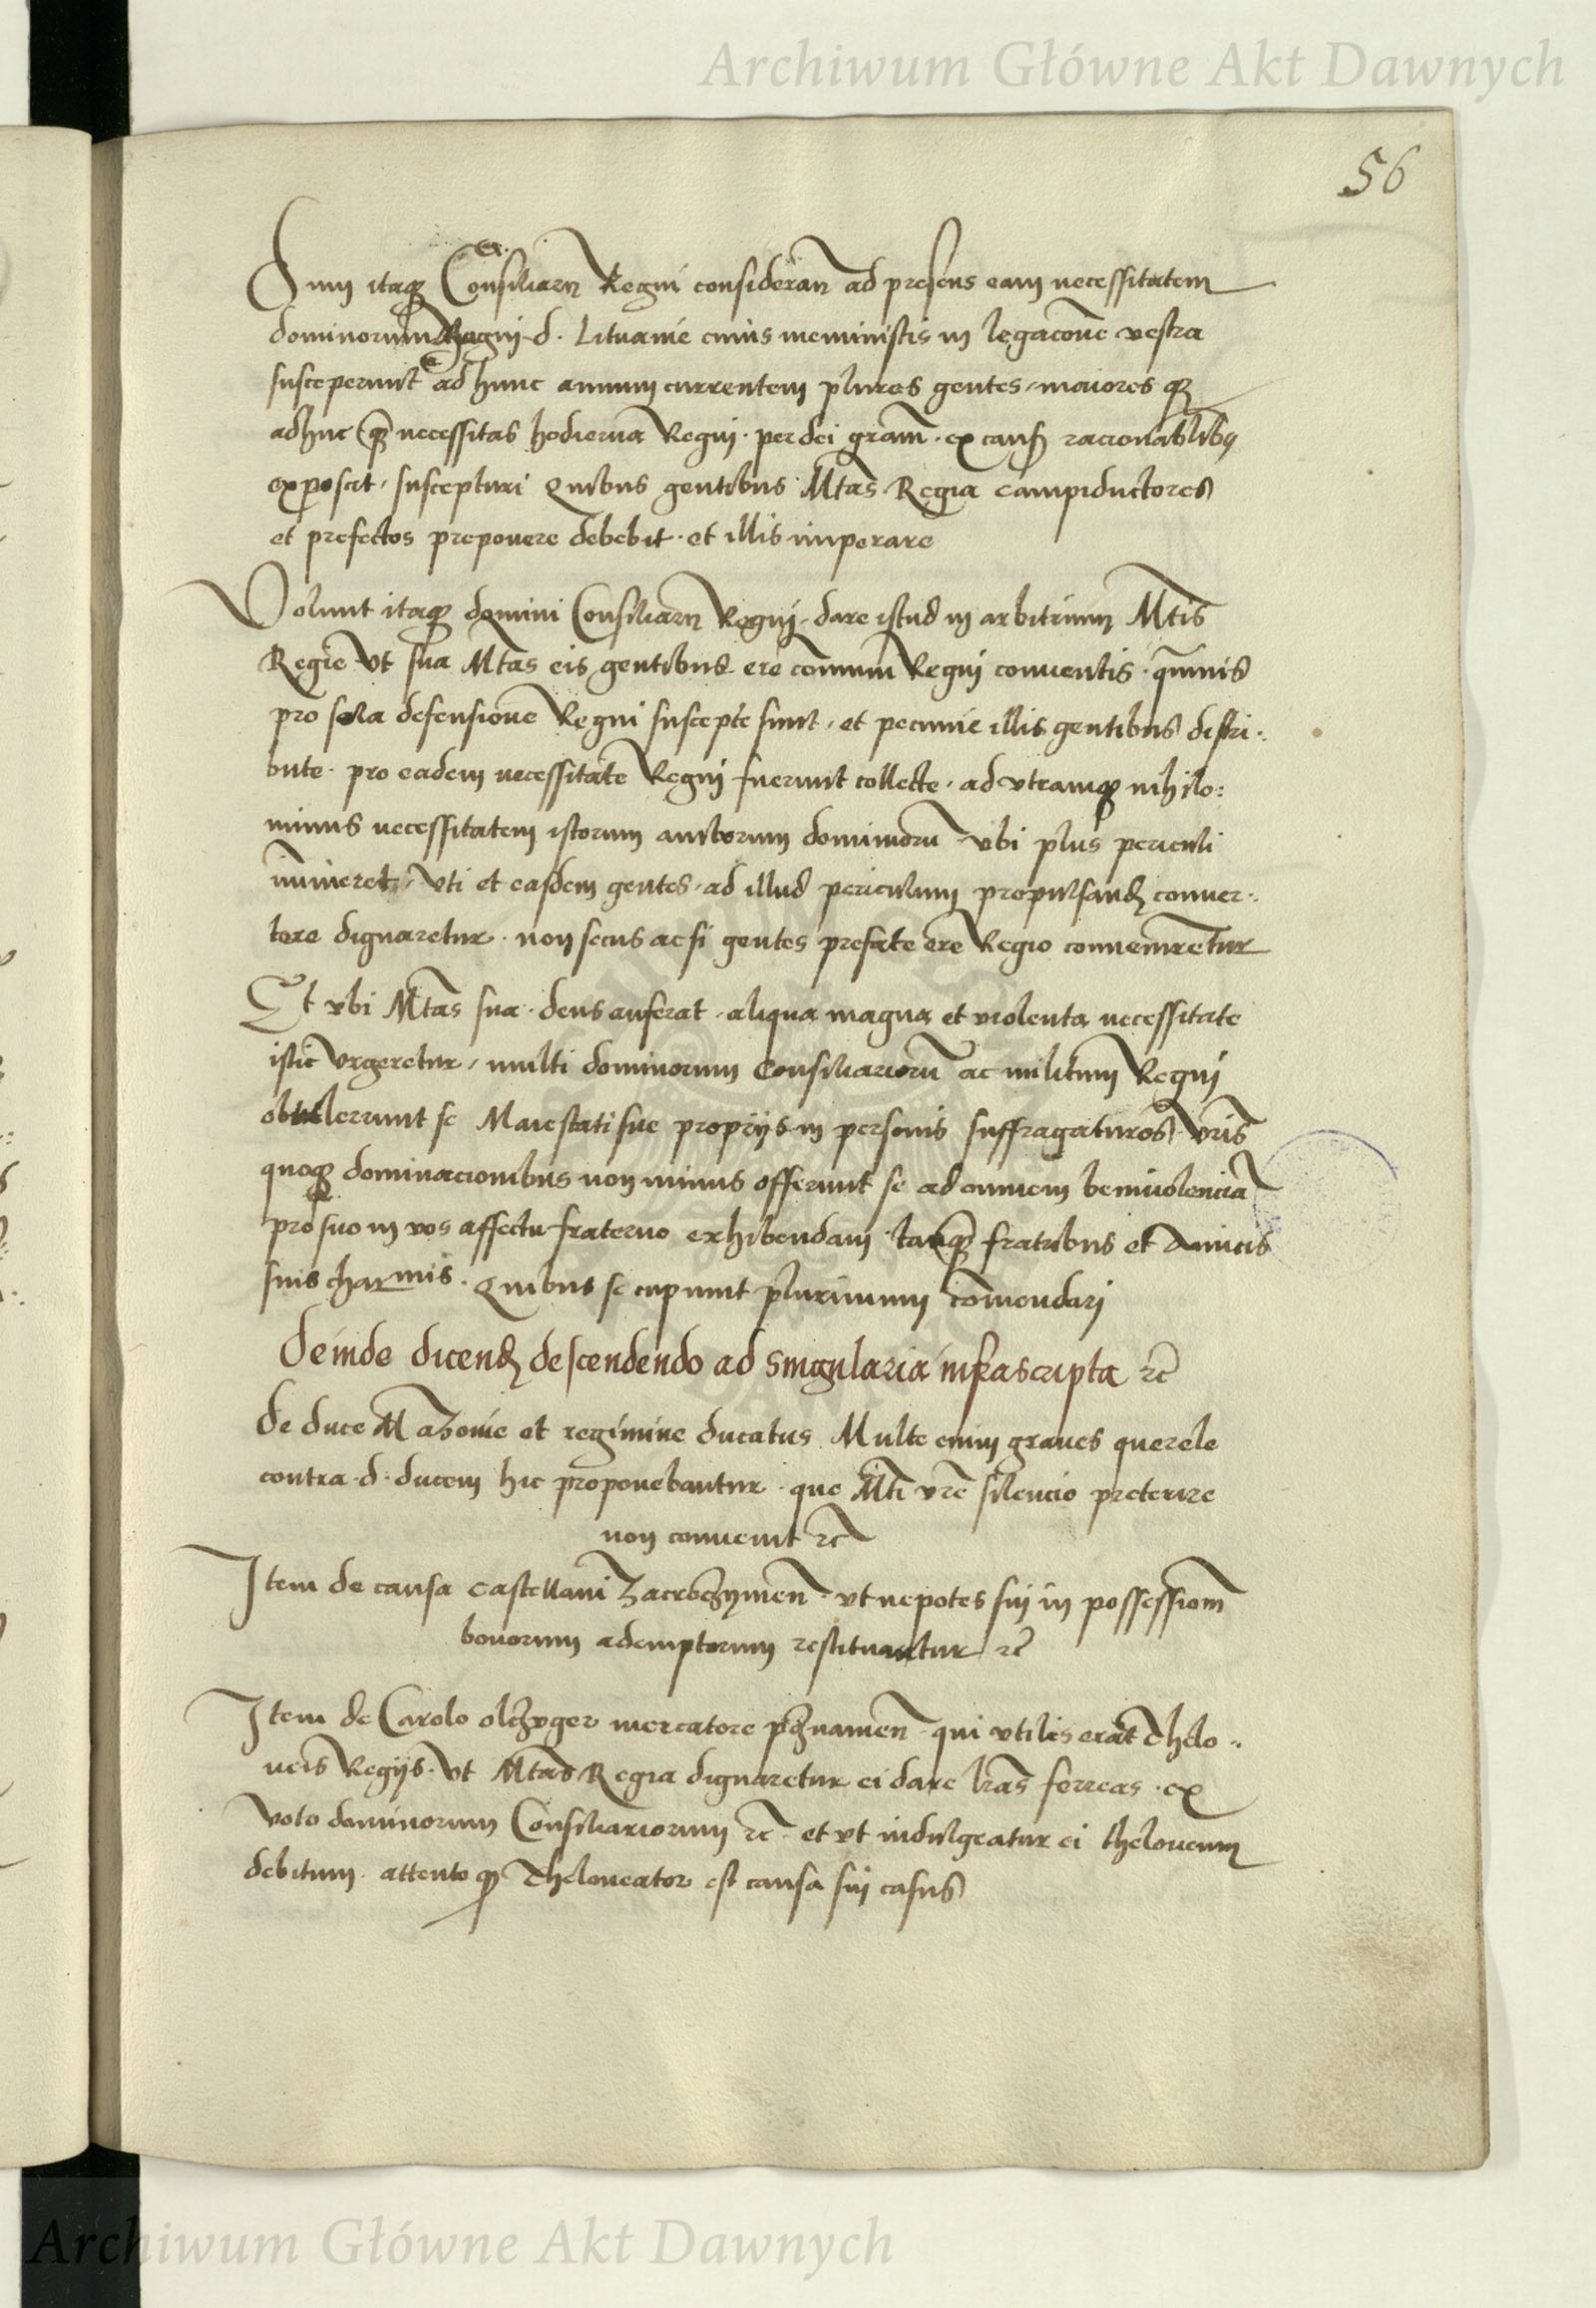 Archiwum Główne Akt Dawnych
56
itaq Consiliarii Regni consideran ad presens eam necessitatem
dominorum d. Lituanie cuius meministis in legacone vestra
susceperunt ad hunc annum currentem plures gentes, maiores q
adhuc q necessitas hodierna Regni. per dei gram. ex caus racionablibq
exposcit, suscepturi Quibus gentibus Mtas Regia campiductores
et prefectos preponere debebit. et illis imperare
Volunt itaq domini Consiliarii Regnj. dare istud in arbitrium Mtis
Regie Vt sua Mtas eis gentibus ere comuni Regni conuentis. quamuis
pro sola defensione Regni suscepte sunt, et pecunie illis gentibus distri:
bute. pro eadem necessitate Regnj fuerunt collecte, ad vtramq nihilo:
minus necessitatem istorum amborum dominioru vbi plus periculi
immineret, vti et easdem gentes, ad illud periculum propulsand conuer:
tere dignaretur. non secus ac si gentes prefate ere Regio conuenirentur
Et vbi Mtas sua. deus auferat. aliqua magna et violenta necessitate
istic Vrgeretur, multi dominorum Consiliarioru ac militum Regnj
obtulerunt se Maiestati sue proprijs in personis suffragaturos. Vris
quoq dominacionibus non minus offerunt se ad omnem beniuolencia
pro suo in vos affectu fraterno exhibendam tanq fratribus et Amicis
suis charmis. Quibus se cupiunt plurimum comendarj
Deinde dicend descendendo ad singularia infrascripta rc
de duce Mazouie et regimine ducatus Multe enim graues querele
contra d. ducem hic proponebantur. que Mti vre silencio preterire
non conuenit rc
Item de causa castellani Zacroczymen. vt nepotes sui in possessiom
bonorum ademptorum restituantur rc
Item de Carolo mercatore qui vtilis erat Thelo:
neis Regijs. Vt Mtas Regia dignaretur ei dare lras ferreas. ex
Voto dominorum Consiliariorum rc. et vt indulgeatur ei theloneum
debitum. attento q Theloneator est causa sui casus
Archiwum Główne Akt Dawnych